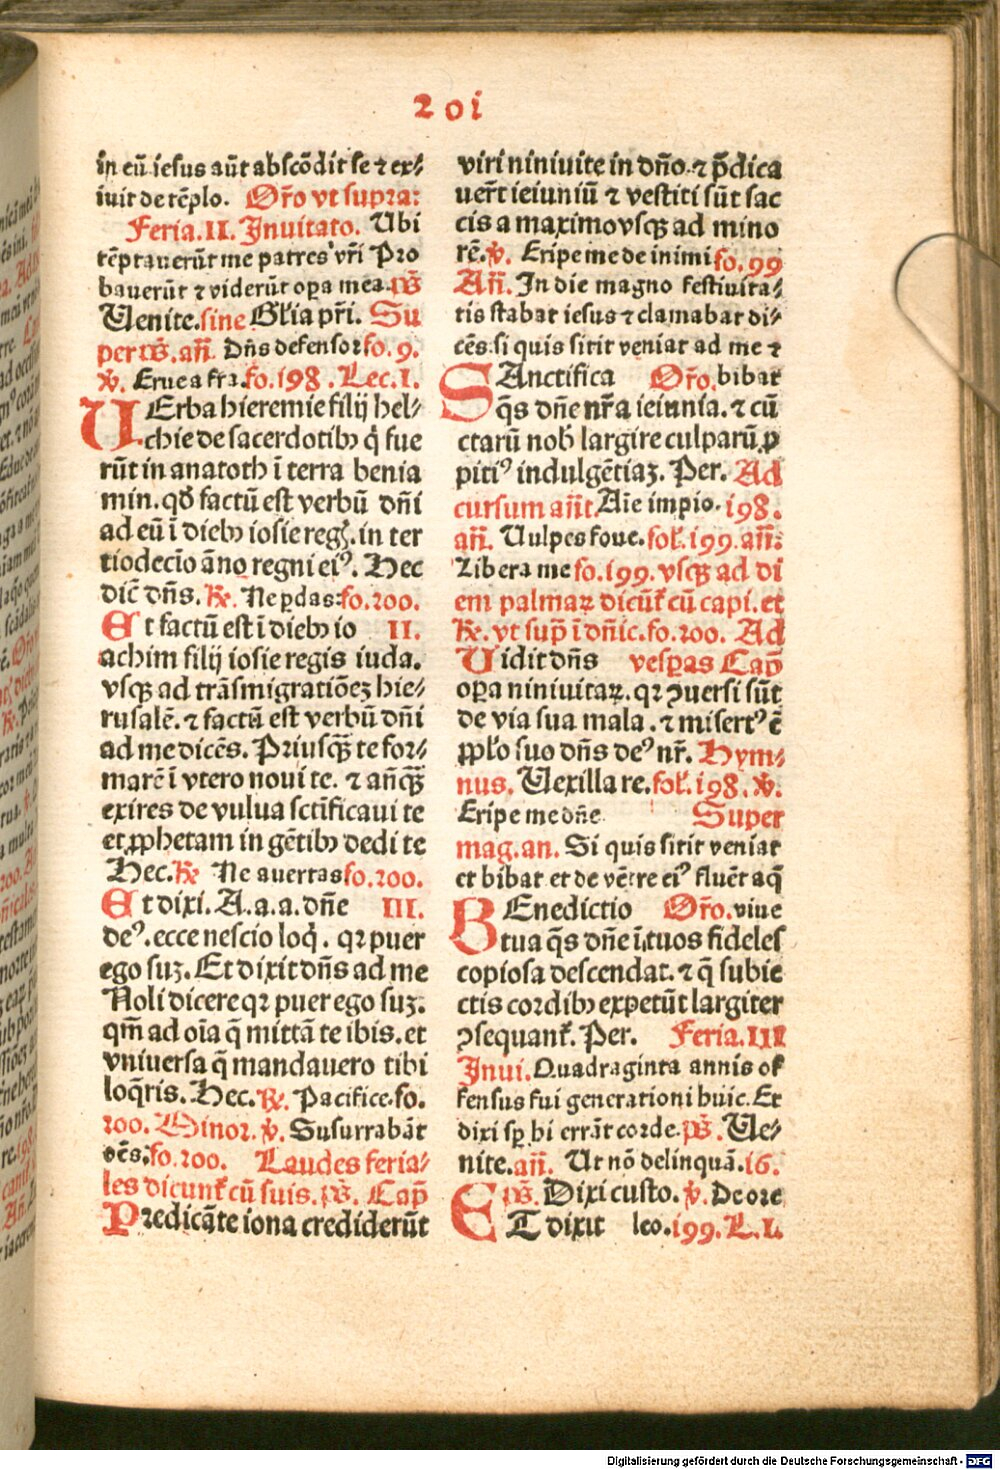 201
in eū iesus aūt abscōdit se ⁊ ex⸗
iuit de tēplo. Or̄o vt supra:
Feria.II. Inuitato. Ubi
tēptauerūt me patres vr̄i Pro
bauerūt ⁊ viderūt oꝑa mea. p̄s
Uenite. sine Gl̄ia pr̄i. Su
per p̄s. an̄. Dn̄s defensor fo.9.
ꝟ. Erue a fra. fo.198. Lec.I.
UErba hieremie filij hel⸗
chie de sacerdotibꝰ q̇ fue
rūt in anatoth ī terra benia
min. qđ factū est verbū dn̄i
ad eū ī diebꝰ iosie reg̃. in ter
tiodecīo āno regni eiꝰ. Hec
dic̄ dn̄s. ℞. Ne ꝑdas: fo.200.
Et factū est ī diebꝰ io II.
achim filij iosie regis iuda.
vsqꝫ ad trāsmigratiōeꝫ hie⸗
rusalē. ⁊ factū est verbū dn̄i
ad me dicēs. Priusqꝫ̄ te for⸗
marē ī vtero noui te. ⁊ an̄qꝫ̄
exires de vulua sct̄ificaui te
et ꝓphetam in gētibꝰ dedi te
Hec. ℞ Ne auertas fo.200.
Et dixi. A.a.a. dn̄e III.
deꝰ. ecce nescio loq̇. qꝛ puer
ego suꝫ. Et dixit dn̄s ad me
Noli dicere qꝛ puer ego suꝫ.
qm̄ ad oīa q̄ mittā te ibis. et
vniuersa q̄ mandauero tibi
loq̄ris. Hec. ℞. Pacifice. fo.
200. Minor. ꝟ. Susurrabāt
oēs: fo.200. Laudes feria⸗
les dicunt̄ cū suis. p̄s. Cap̄
Predicāte iona crediderūt
viri niniuite in dn̄o. ⁊ p̄dica
uer̄t ieiuniū ⁊ vestiti sūt sac
cis a maximo vsqꝫ ad mino
rē. ꝟ. Eripe me de inimi fo.99
An̄. In die magno festiuita⸗
tis stabat iesus ⁊ clamabat di⸗
cēs. si quis sitit veniat ad me ⁊
SAnctifica Or̄o. bibat
q̄s dn̄e nr̄a ieiunia. ⁊ cū
ctarū nob̄ largire culparū ꝓ
pitiꝰ indulgētiaꝫ. Per. Ad
cursum an̄t Aīe impio. 198.
an̄. Uulpes foue. fol̄. 199. an̄:
Libera me fo.199. vsqꝫ ad di
em palmaꝝ dicūt̄ cū capi. et
℞. vt sup̄ ī dn̄ic. fo.200. Ad
Uidit dn̄s vesꝑas Cap̄
oꝑa niniuitaꝝ. qꝛ ꝯuersi sūt
de via sua mala. ⁊ misertꝰ ē
pp̄lo suo dn̄s deꝰ nr̄. Hym⸗
nus. Uexilla re. fol̄. 198. ꝟ.
Eripe me dn̄e Super
mag. an. Si quis sitit veniat
et bibat et de vētre eiꝰ fluēt aq̄
BEnedictio Or̄o. viue
tua q̄s dn̄e ī tuos fideles
copiosa descendat. ⁊ q̄ subie
ctis cordibꝰ expetūt largiter
ꝯsequant̄. Per. Feria.III
Inui. Quadraginta annis of
fensus fui generationi huic. Et
dixi sp̄ hi errāt corde. p̄s. Ue⸗
nite. an̄. Ut nō delinquā. 16.
p̄s. Dixi custo. ꝟ. De ore
ET dixit leo. 199. L.I.
Digitalisierung gefördert durch die Deutsche Forschungsgemeinschaft - DFG